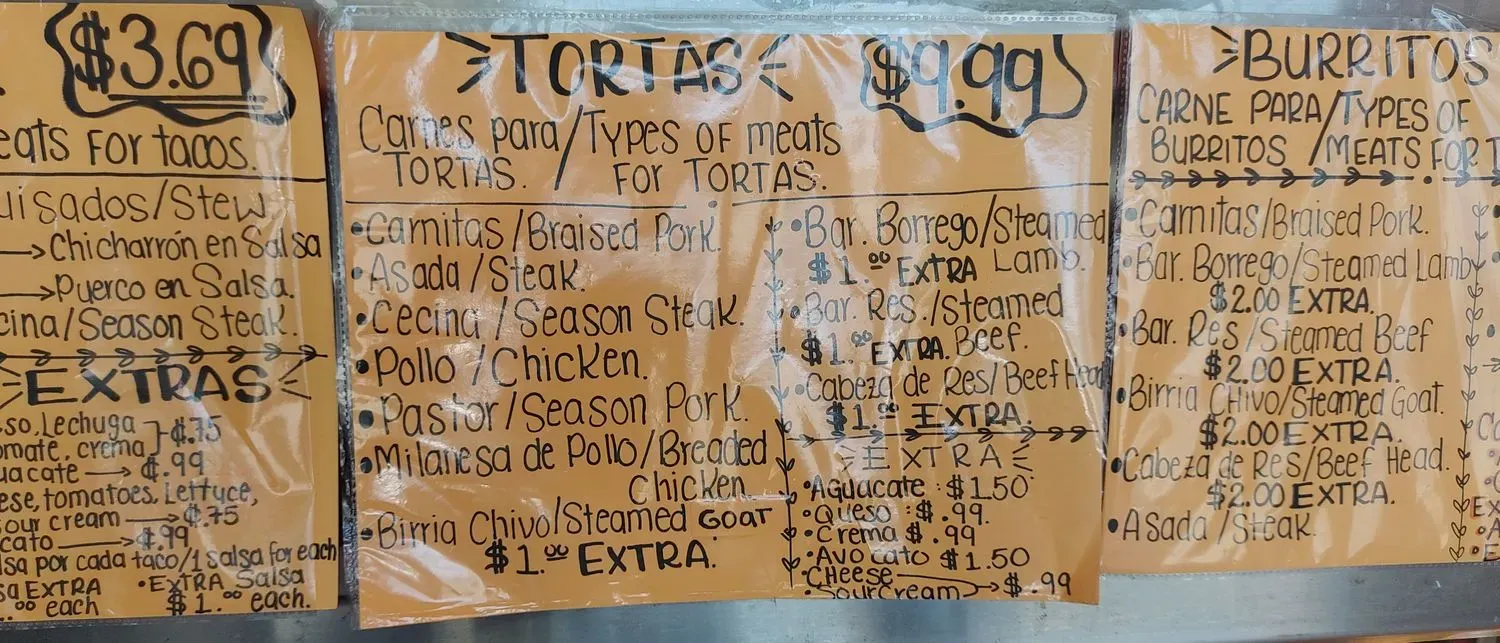 $3.69
Meats For tacos.
Guisados/Stew
→Chicharrón en Salsa
→Puerco en Salsa.
Cecina/Season Steak.
EXTRAS
Lechuga
crema} $.75
→ $.99
tomatoes, Lettuce,
sour cream → $.75
→ $.99
por cada taco/1 salsa for each
EXTRA •EXTRA Salsa
.00 each $1.00 each.
TORTAS $9.99
Carnes para/Types of meats
TORTAS. / For TORTAS.
•Carnitas/Braised Pork.
•Asada/Steak.
•Cecina/Season Steak.
•Pollo/Chicken.
•Pastor/Season Pork.
•Milanesa de Pollo/Breaded
Chicken
•Birria Chivo/Steamed GOAT
$1.00 EXTRA.
•Bar. Borrego/Steamed
$1.00 EXTRA Lamb.
•Bar. Res./Steamed
$1.00 EXTRA. Beef.
•Cabeza de Res/Beef Head
$1.00 EXTRA.
EXTRA
•Aguacate : $1.50
•Queso : $.99.
•Crema $.99
•Avocato $1.50
•CHeese
•Sour cream → $.99
BURRITOS
CARNE PARA/TYPES OF
BURRITOS /MEATS FOR
•Carnitas/Braised Pork.
•Bar. Borrego/Steamed Lamb
$2.00 EXTRA.
•Bar. Res/Steamed Beef
$2.00 EXTRA.
•Birria CHivo/Steamed Goat.
$2.00 EXTRA.
•Cabeza de Res/Beef Head.
$2.00 EXTRA.
•Asada/Steak.